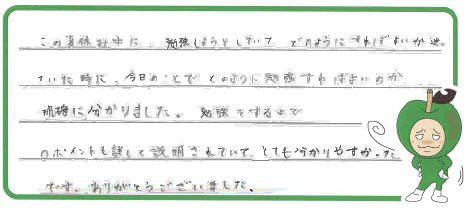 この夏休み中に、勉強しようとしていて どのようにすればよいか迷
ていた時に、今日のことで どのように勉強すればよいのか
明確に分かりました。 勉強をする上で
のポイントも詳しく説明されていて、とても分かりやすかった
です。ありがとうございました。